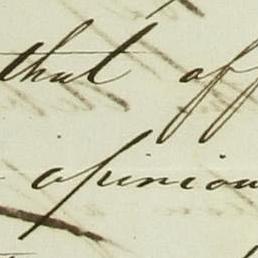 that off
opinion